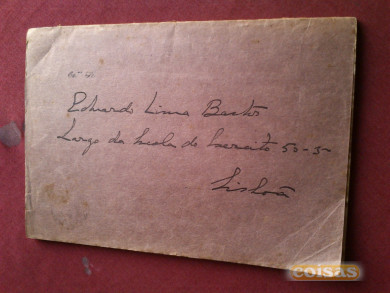 Eduardo Lima Basto
Largo da Escola do Exercito 50-5
Lisboa
coisas